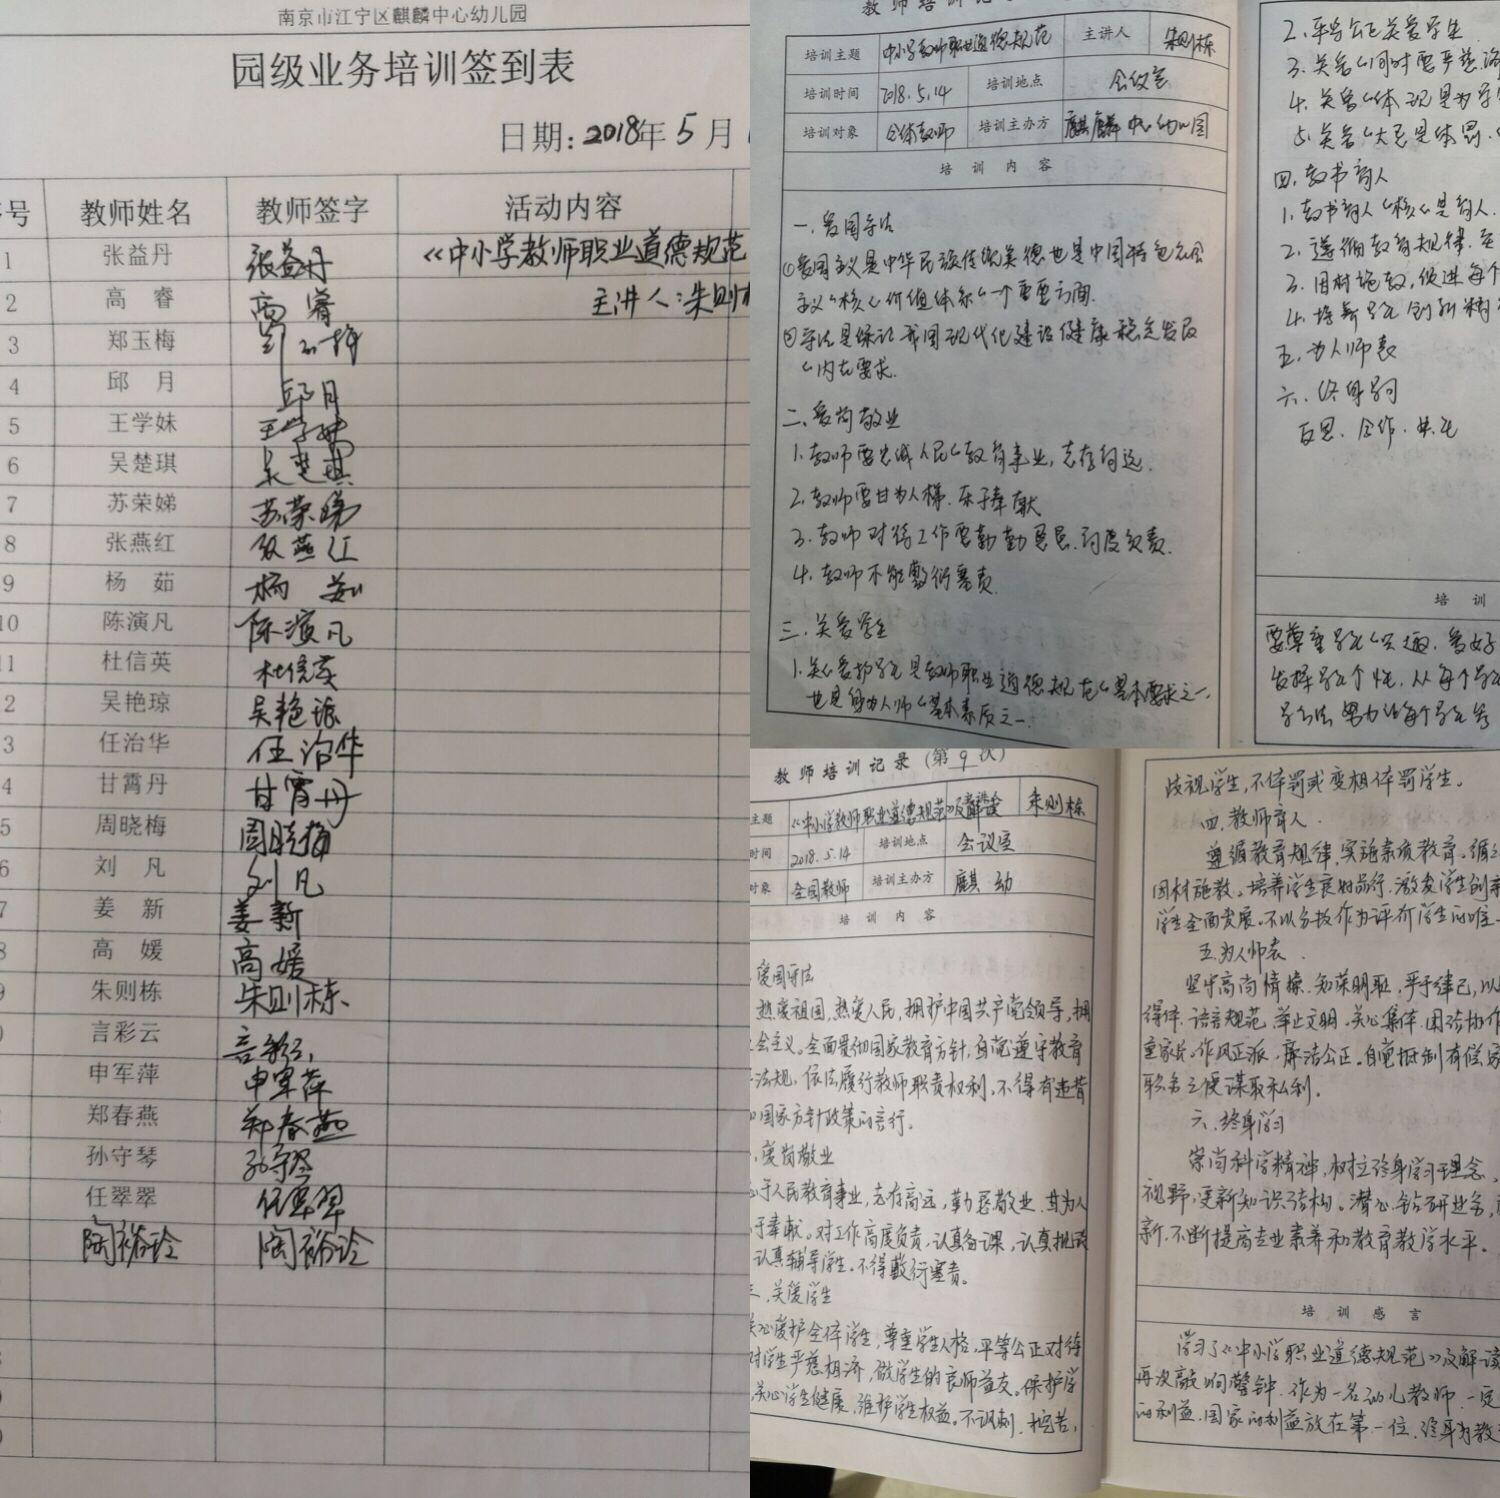 南京市江宁区麒麟中心幼儿园
园级业务培训签到表
日期：2018年5月
号 教师姓名 教师签字 活动内容
1 张益丹 张益丹 《中小学教师职业道德规范
2 高睿 高睿 主讲人：朱则
3 郑玉梅
4 邱月 邱月
5 王学妹 王学妹
6 吴楚琪 吴楚琪
7 苏荣娣 苏荣娣
8 张燕红 张燕红
9 杨茹 杨茹
10 陈演凡 陈演凡
11 杜信英 杜信英
2 吴艳琼 吴艳琼
3 任治华 任治华
4 甘霄丹 甘霄丹
5 周晓梅 周晓梅
6 刘凡 刘凡
7 姜新 姜新
8 高媛 高媛
9 朱则栋 朱则栋
言彩云 言彩云
申军萍 申军萍
郑春燕 郑春燕
孙守琴 孙守琴
任翠翠 任翠翠
陶裕玲 陶裕玲
教师培训记
培训主题 中小学教师职业道德规范 主讲人 朱则栋
培训时间 2018.5.14 培训地点 会议室
培训对象 全体教师 培训主办方 麒麟中心幼儿园
培训内容
一.爱国守法
①爱国主义是中华民族传统美德也是中国特色社会
主义核心价值体系一个重要方面.
②守法是保证我国现代化建设健康稳定发展
内在要求.
二.爱岗敬业
1.教师要忠诚人民教育事业,志存高远.
2.教师要甘为人梯.乐于奉献
3.教师对待工作要勤勤恳恳.高度负责.
4.教师不能敷衍塞责.
三.关爱学生
1.关心爱护学生是教师职业道德规范基本要求之一,
也是身为人师基本素质之一.
2.平等公正关爱学生
3.关爱同时要严慈
4.关爱体现是为学
5.关爱大忌是体罚.
四.教书育人
1.教书育人核心是育人.
2.遵循教育规律.
3.因材施教,促进每个
4.培养学生创新精
五.为人师表
六.终身学习
反思.合作.
培训
要尊重学生兴趣.爱好
发挥学生个性,从每个学
努力让每个学生
教师培训记录(第9次)
主题 《中小学教师职业道德规范》及解读 朱则栋
时间 2018.5.14 培训地点 会议室
对象 全园教师 培训主办方 麒幼
培训内容
.爱国守法
热爱祖国,热爱人民,拥护中国共产党领导,拥
会主义。全面贯彻国家教育方针,自觉遵守教育
法规,依法履行教师职责权利,不得有违背
国家方针政策的言行。
.爱岗敬业
于人民教育事业,志存高远,勤恳敬业.甘为人
于奉献。对工作高度负责,认真备课,认真批改
认真辅导学生。不得敷衍塞责。
三.关爱学生
关心爱护全体学生,尊重学生人格,平等公正对待
对学生严慈相济,做学生的良师益友。保护学
关心学生健康,维护学生权益。不讽刺.挖苦,
歧视学生,不体罚或变相体罚学生。
四.教师育人.
遵循教育规律,实施素质教育。循
因材施教。培养学生良好品行.激发学生创新
学生全面发展。不以分数作为评价学生的唯一
五.为人师表.
坚守高尚情操.知荣明耻,严于律己,以
得体.语言规范.举止文明.关心集体.团结协作
重家长.作风正派,廉洁公正。自觉抵制有偿家
职务之便谋取私利。
六.终身学习
崇尚科学精神,树立终身学习理念,
视野,更新知识结构。潜心钻研业务,
新.不断提高专业素养和教育教学水平。
培训感言
学习了《中小学职业道德规范》及解读
再次敲响警钟.作为一名幼儿教师.一定
的利益.国家的利益放在第一位.终身为教